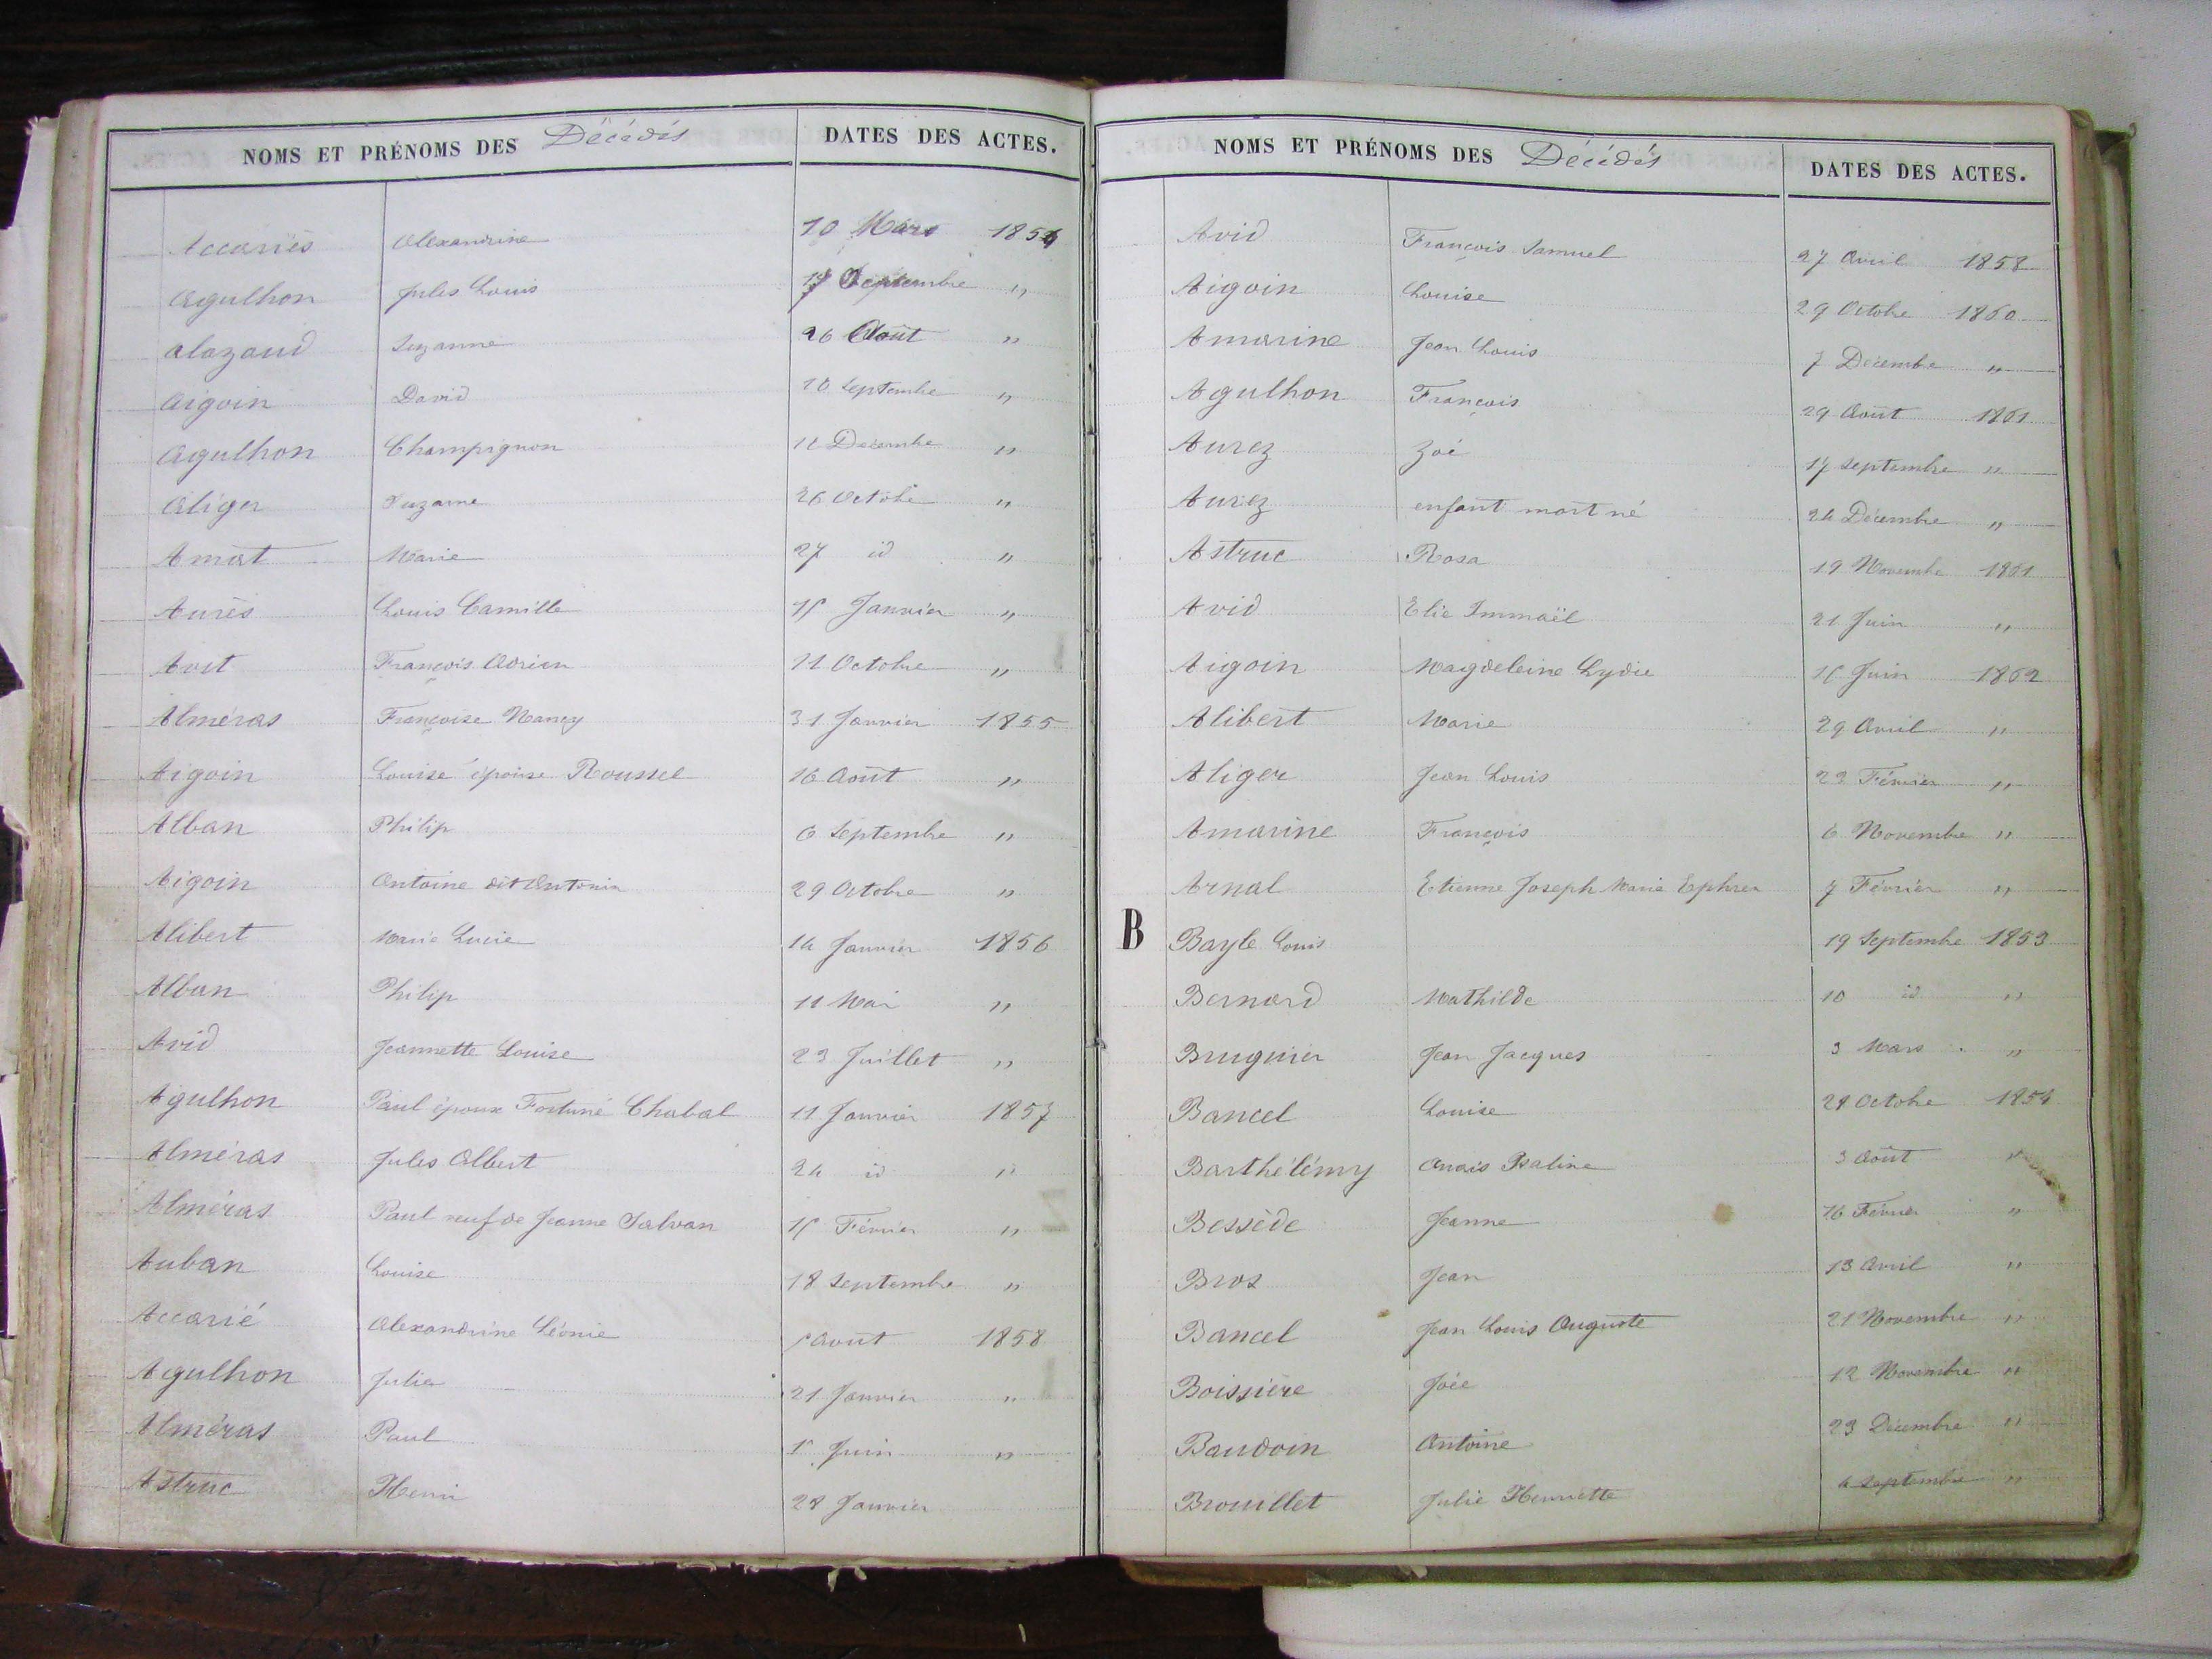 NOMS ET PRÉNOMS DES Décédés DATES DES ACTES.
Accariès Alexandrine 10 Mars 1854
Agulhon Jules Louis Septembre "
Alazaud Suzanne 26 Août "
Aigoin David 10 Septembre "
Agulhon Champignon 11 Décembre "
Aliger Suzanne 26 Octobre "
Amat Marie 27 id "
Aurès Louis Camille 15 Janvier "
Avit François Adrien 11 Octobre "
Alméras Françoise Nancy 31 Janvier 1855
Aigoin Louise épouse Roussel 16 Août "
Alban Philip 6 Septembre "
Aigoin Antoine dit Antonin 29 Octobre "
Alibert Marie Lucie 14 Janvier 1856
Alban Philip 11 Mai "
Avid Jeannette Louise 23 Juillet "
Agulhon Paul époux Fortuné Chabal 11 Janvier 1857
Alméras Jules Albert 24 id "
Alméras Paul veuf de Jeanne Salvan 15 Février "
Auban Louise 18 Septembre "
Accarié Alexandrine Léonie 5 Août 1858
Agulhon Julie 21 Janvier "
Alméras Paul 5 Juin "
Astruc Henri 28 Janvier
NOMS ET PRÉNOMS DES Décédés DATES DES ACTES.
Avid François Samuel 27 Avril 1858
Aigoin Louise 29 Octobre 1860
Amarine Jean Louis 7 Décembre "
Agulhon François 29 Août 1861
Aurez Zoé 17 Septembre "
Aurez enfant mort né 24 Décembre "
Astruc Rosa 19 Novembre 1861
Avid Elie Immaël 21 Juin "
Aigoin Magdeleine Lydie 15 Juin 1862
Alibert Marie 29 Avril "
Aliger Jean Louis 23 Février "
Amarine François 6 Novembre "
Arnal Etienne Joseph Marie Ephrem 7 Février "
B Bayle Louis 19 Septembre 1853
Bernard Mathilde 10 id "
Bruguier Jean Jacques 3 Mars "
Bancel Louise 28 Octobre 1854
Barthélémy Anais Rosaline 3 Août "
Bessède Jeanne 16 Février "
Bros Jean 13 Avril "
Bancel Jean Louis Auguste 21 Novembre "
Boissière Zoée 12 Novembre "
Baudoin Antoine 23 Décembre "
Brouillet Julie Henriette 4 Septembre "